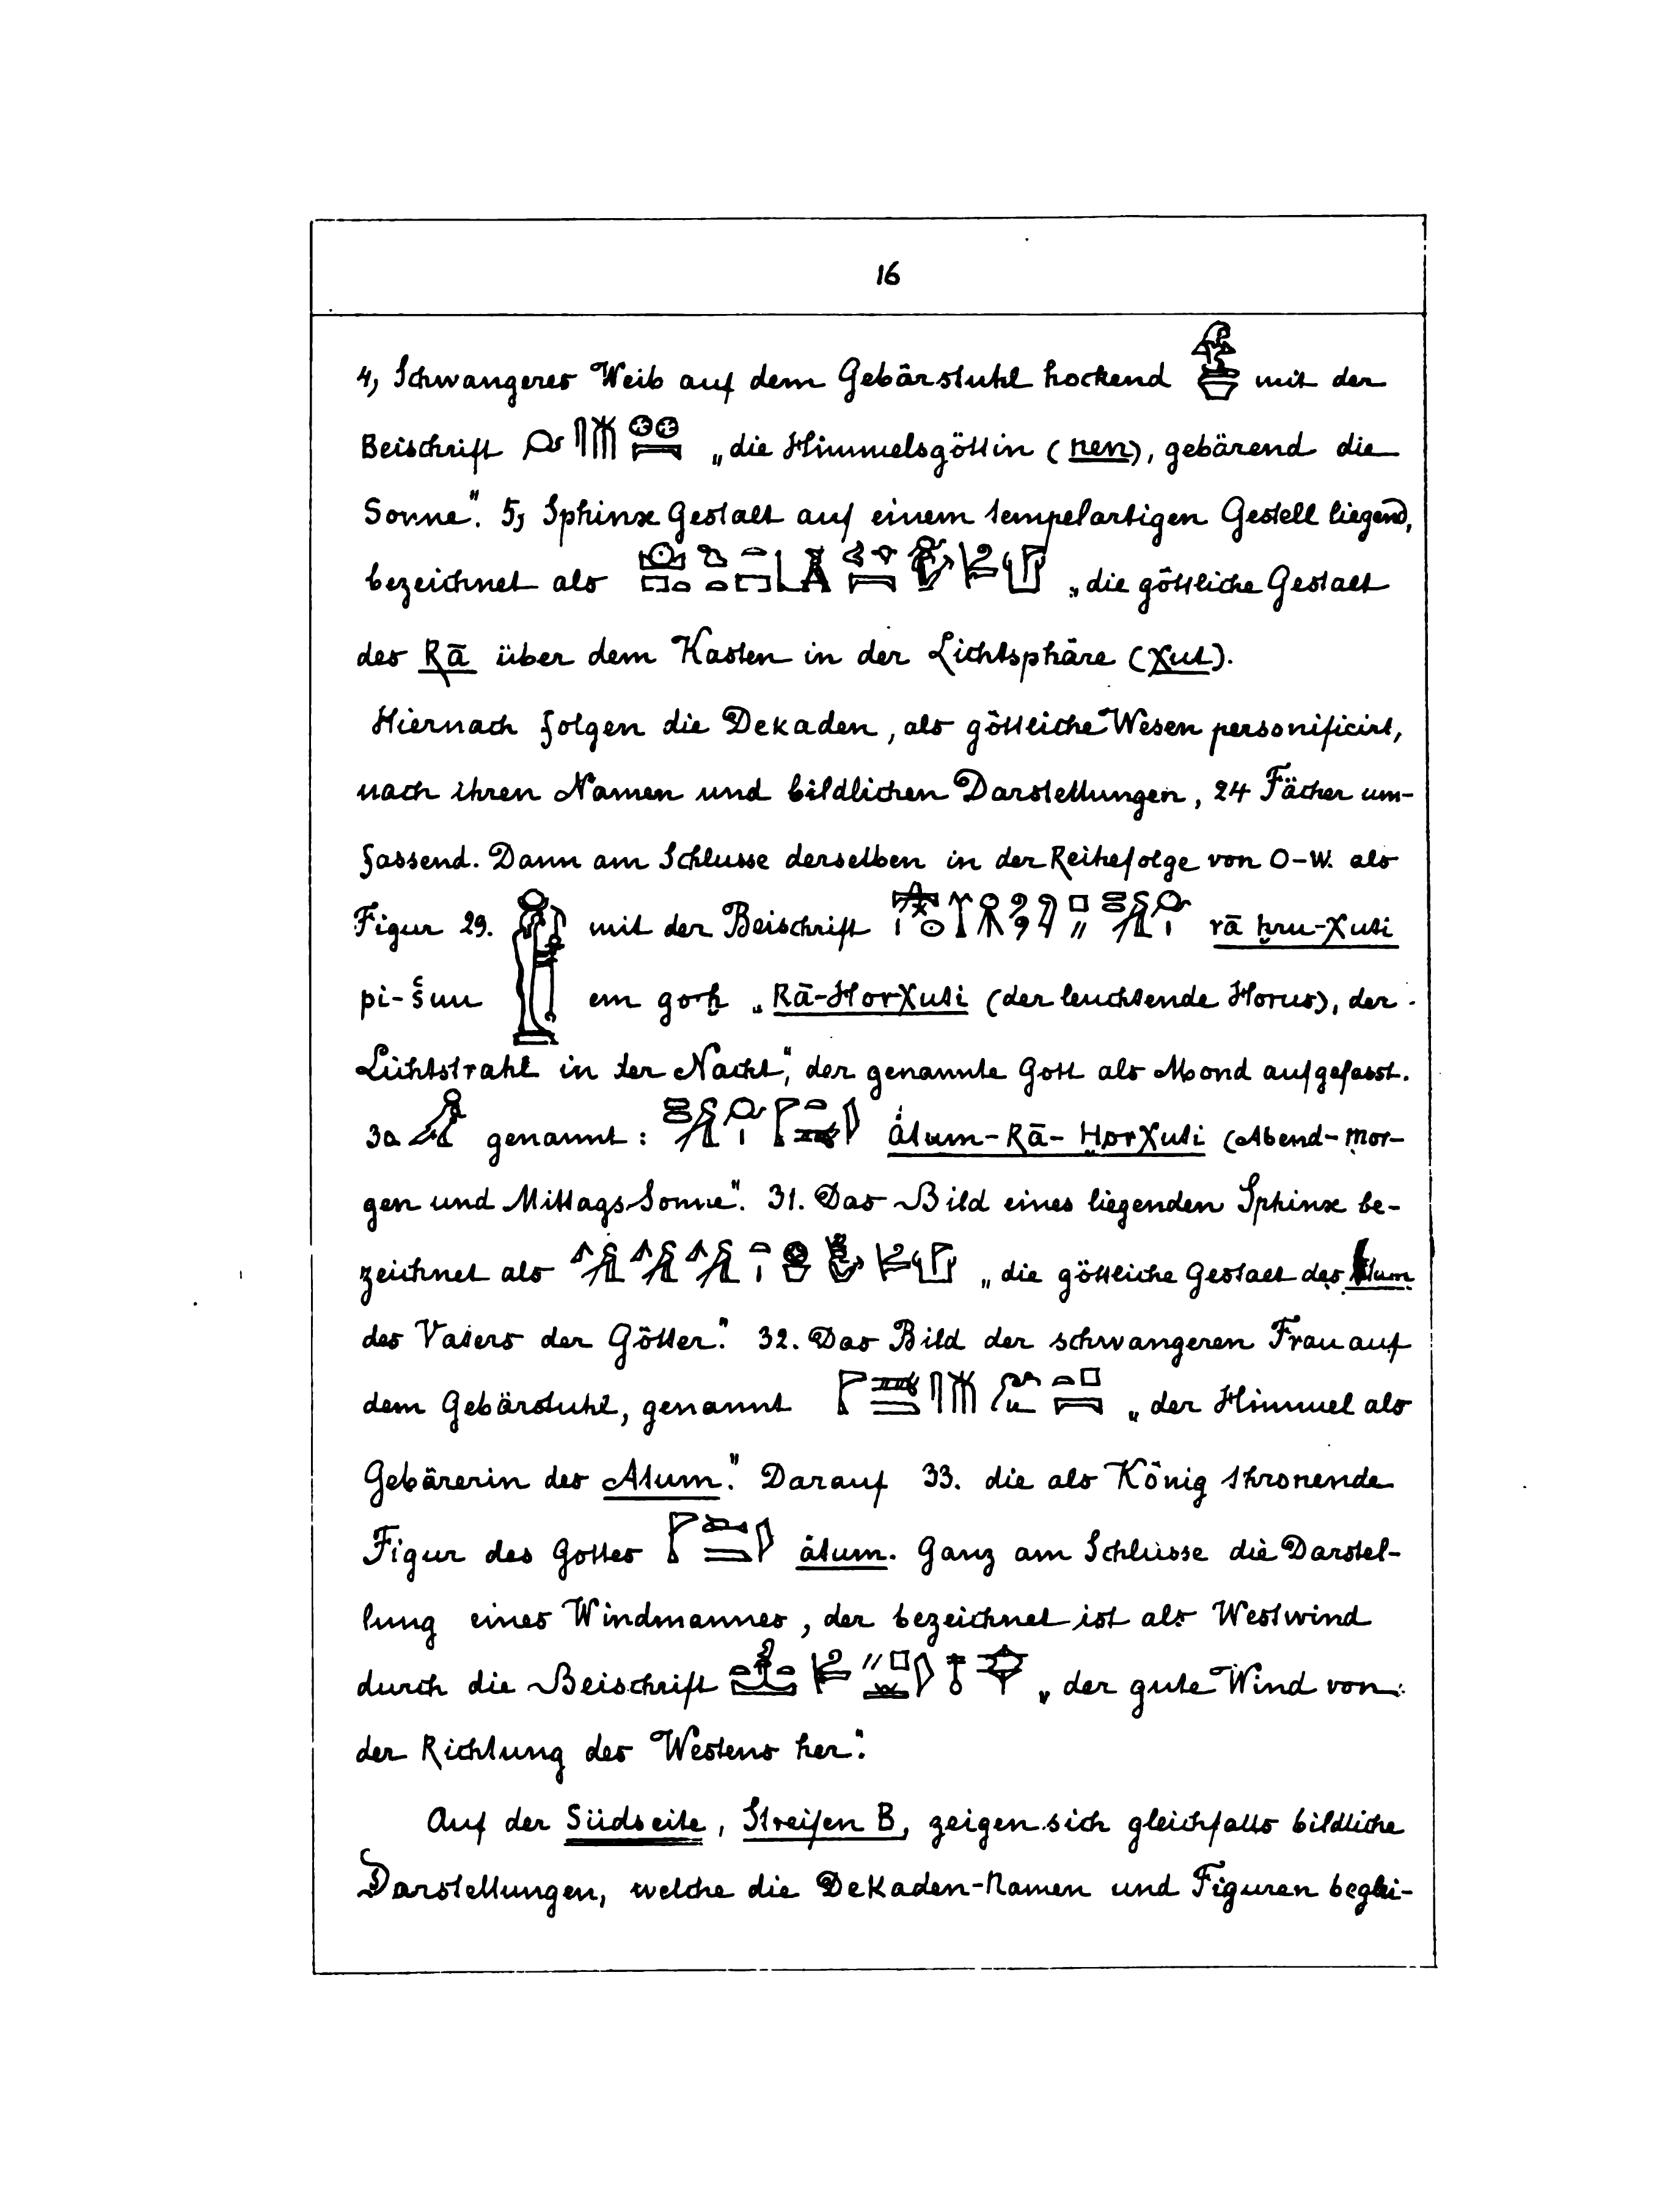 16
4, Schwangeres Weib auf dem Gebärstuhl hockend mit der
Beischrift „die Himmelsgöttin (nen), gebärend die
Sonne". 5, Sphinx Gestalt auf einem tempelartigen Gestell liegend,
bezeichnet als „die göttliche Gestalt
des Rā über dem Kasten in der Lichtsphäre (χut).
Hiernach folgen die Dekaden, als göttliche Wesen personificirt,
nach ihren Namen und bildlichen Darstellungen, 24 Fächer um-
fassend. Dann am Schlusse derselben in der Reihefolge von O-W. als
Figur 29. mit der Beischrift rā ḥru-χuti
pi- em gorḥ „Rā-Horχuti (der leuchtende Horus), der
Lichtstrahl in der Nacht", der genannte Gott als Mond aufgefasst.
30 genannt: åtum-Rā-Ḥorχuti (Abend-Mor-
gen und Mittags-Sonne". 31. Das Bild eines liegenden Sphinx be-
zeichnet als „die göttliche Gestalt des Atum
des Vaters der Götter." 32. Das Bild der schwangeren Frau auf
dem Gebärstuhl, genannt „der Himmel als
Gebärerin des Atum." Darauf 33. die als König thronende
Figur des Gottes åtum. Ganz am Schlusse die Darstel-
lung eines Windmannes, der bezeichnet ist als Westwind
durch die Beischrift „der gute Wind von
der Richtung des Westens her."
Auf der Südseite, Streifen B, zeigen sich gleichfalls bildliche
Darstellungen, welche die Dekaden-Namen und Figuren beglei-